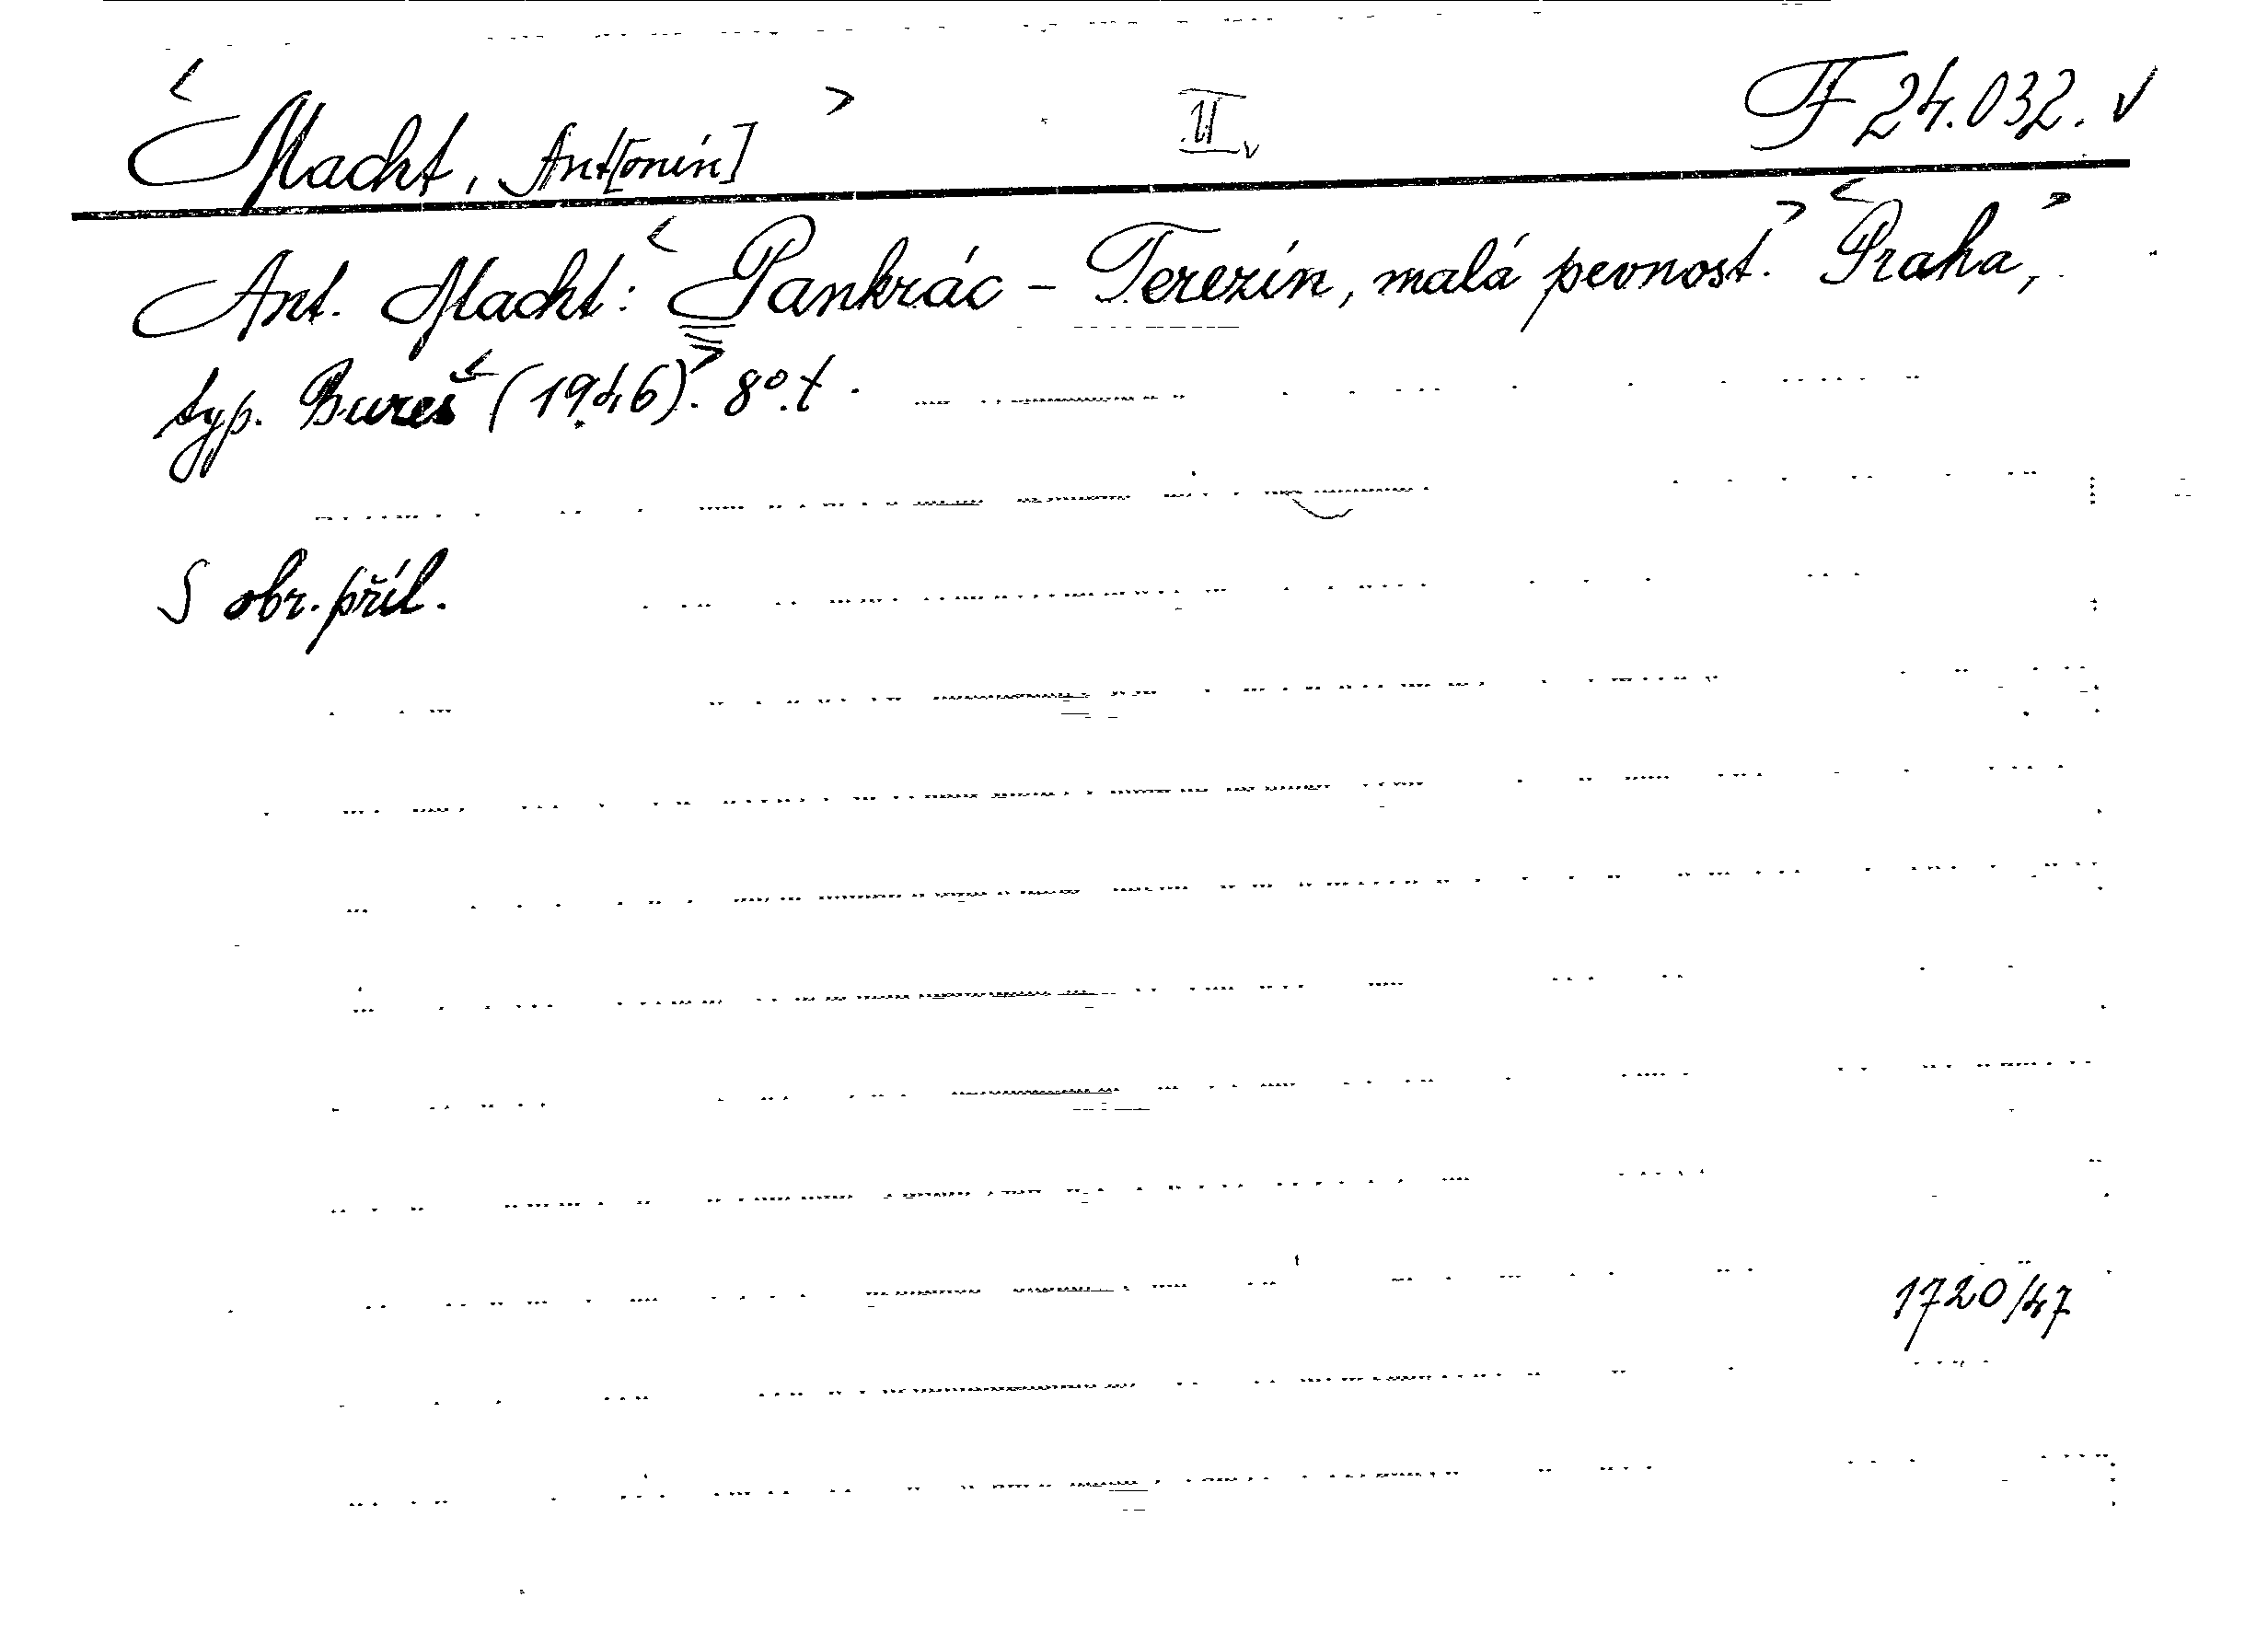 <Macht, Ant[onín]> II F 24.032. v
Ant. Macht: <Pankrác - Terezín, malá pevnost.> <Praha,>
typ. Bureš <(1946)>. 8°. t.
S obr. příl.
1720/47